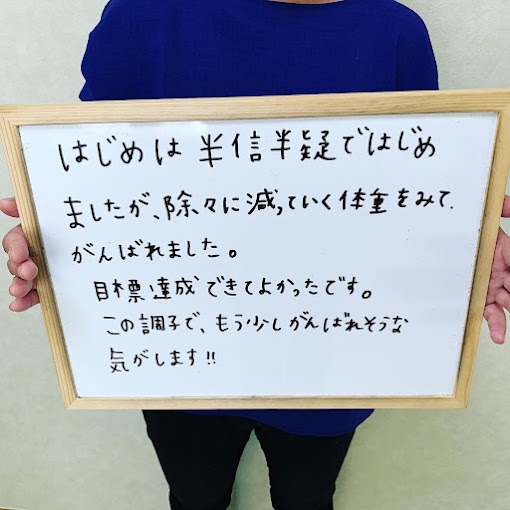 はじめは 半信半疑ではじめ
ましたが、除々に減っていく体重をみて、
がんばれました。
目標達成できてよかったです。
この調子で、もう少しがんばれそうな
気がします!!